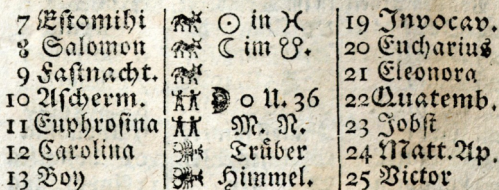 7 Estomihi ☉ in ♓ 19 Invocav.
8 Salomon ☾ im ☋. 20 Eucharius
9 Fastnacht. 21 Eleonora
10 Ascherm. 0 U. 36 22 Quatemb.
11 Euphrosina M. N. 23 Jobst
12 Carolina Trüber 24 Matt. Ap.
13 Boy Himmel. 25 Victor